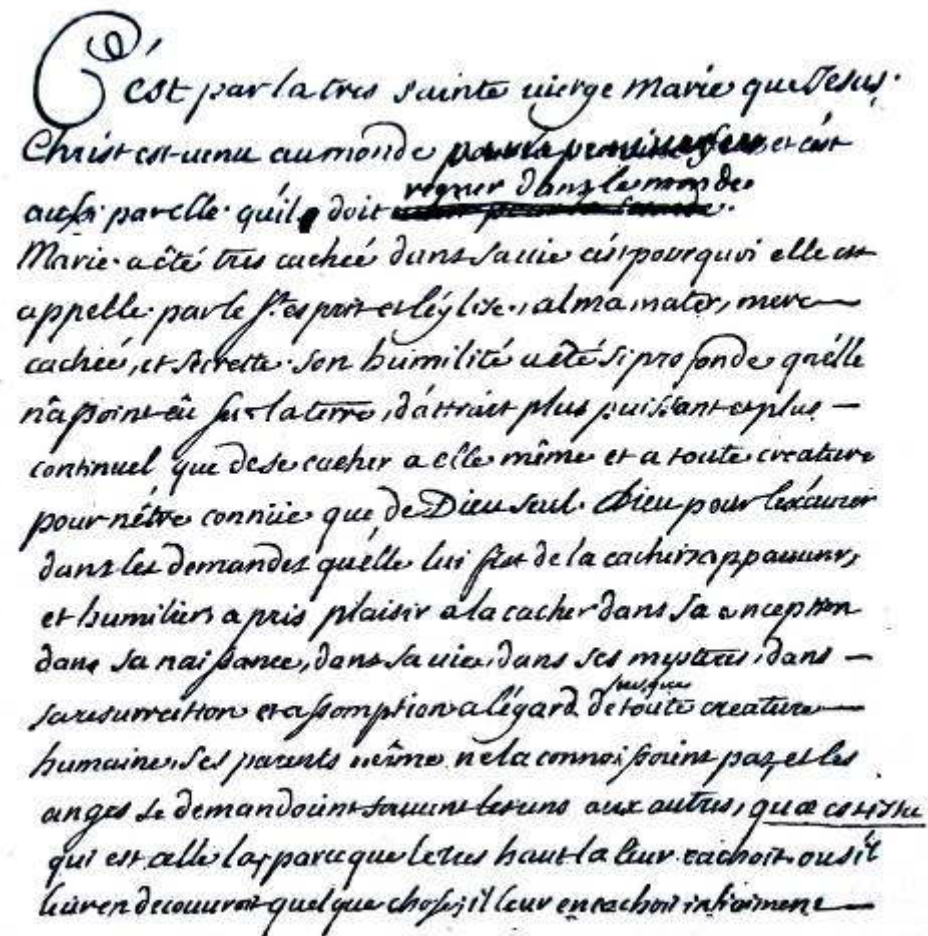 C'est par la tres sainte vierge Marie que Jesus
Christ est venu au monde et c'est
regner dans le monde
aussi par elle qu'il doit
Marie a êté tres cachée dans sa vie c'est pourquoi elle est
appellé par le St esprit et l'église, alma mater, mere
cachée, et secrette. son humilité a êté si profonde qu'elle
n'a point eû sur la terre, d'attrait plus puissant et plus
continuel que de se cacher a elle même et a toute creature
pour n'être connüe que de Dieu seul. Dieu pour l'exaucer
dans les demandes qu'elle lui fist de la cacher, appauvrir,
et humilier, a pris plaisir a la cacher dans sa conception
dans sa naissance, dans sa vie, dans ses mysteres, dans
sa resurrection et assomption a l'égard de presque toute creature
humaine. ses parents même ne la connoissoient pas, et les
anges se demandoient souvent les uns aux autres, quæ est ista
qui est celle la, parce que le tres haut la leur cachoit. ou s'il
leur en decouvroit quelque chose, il leur en cachoit infiniment